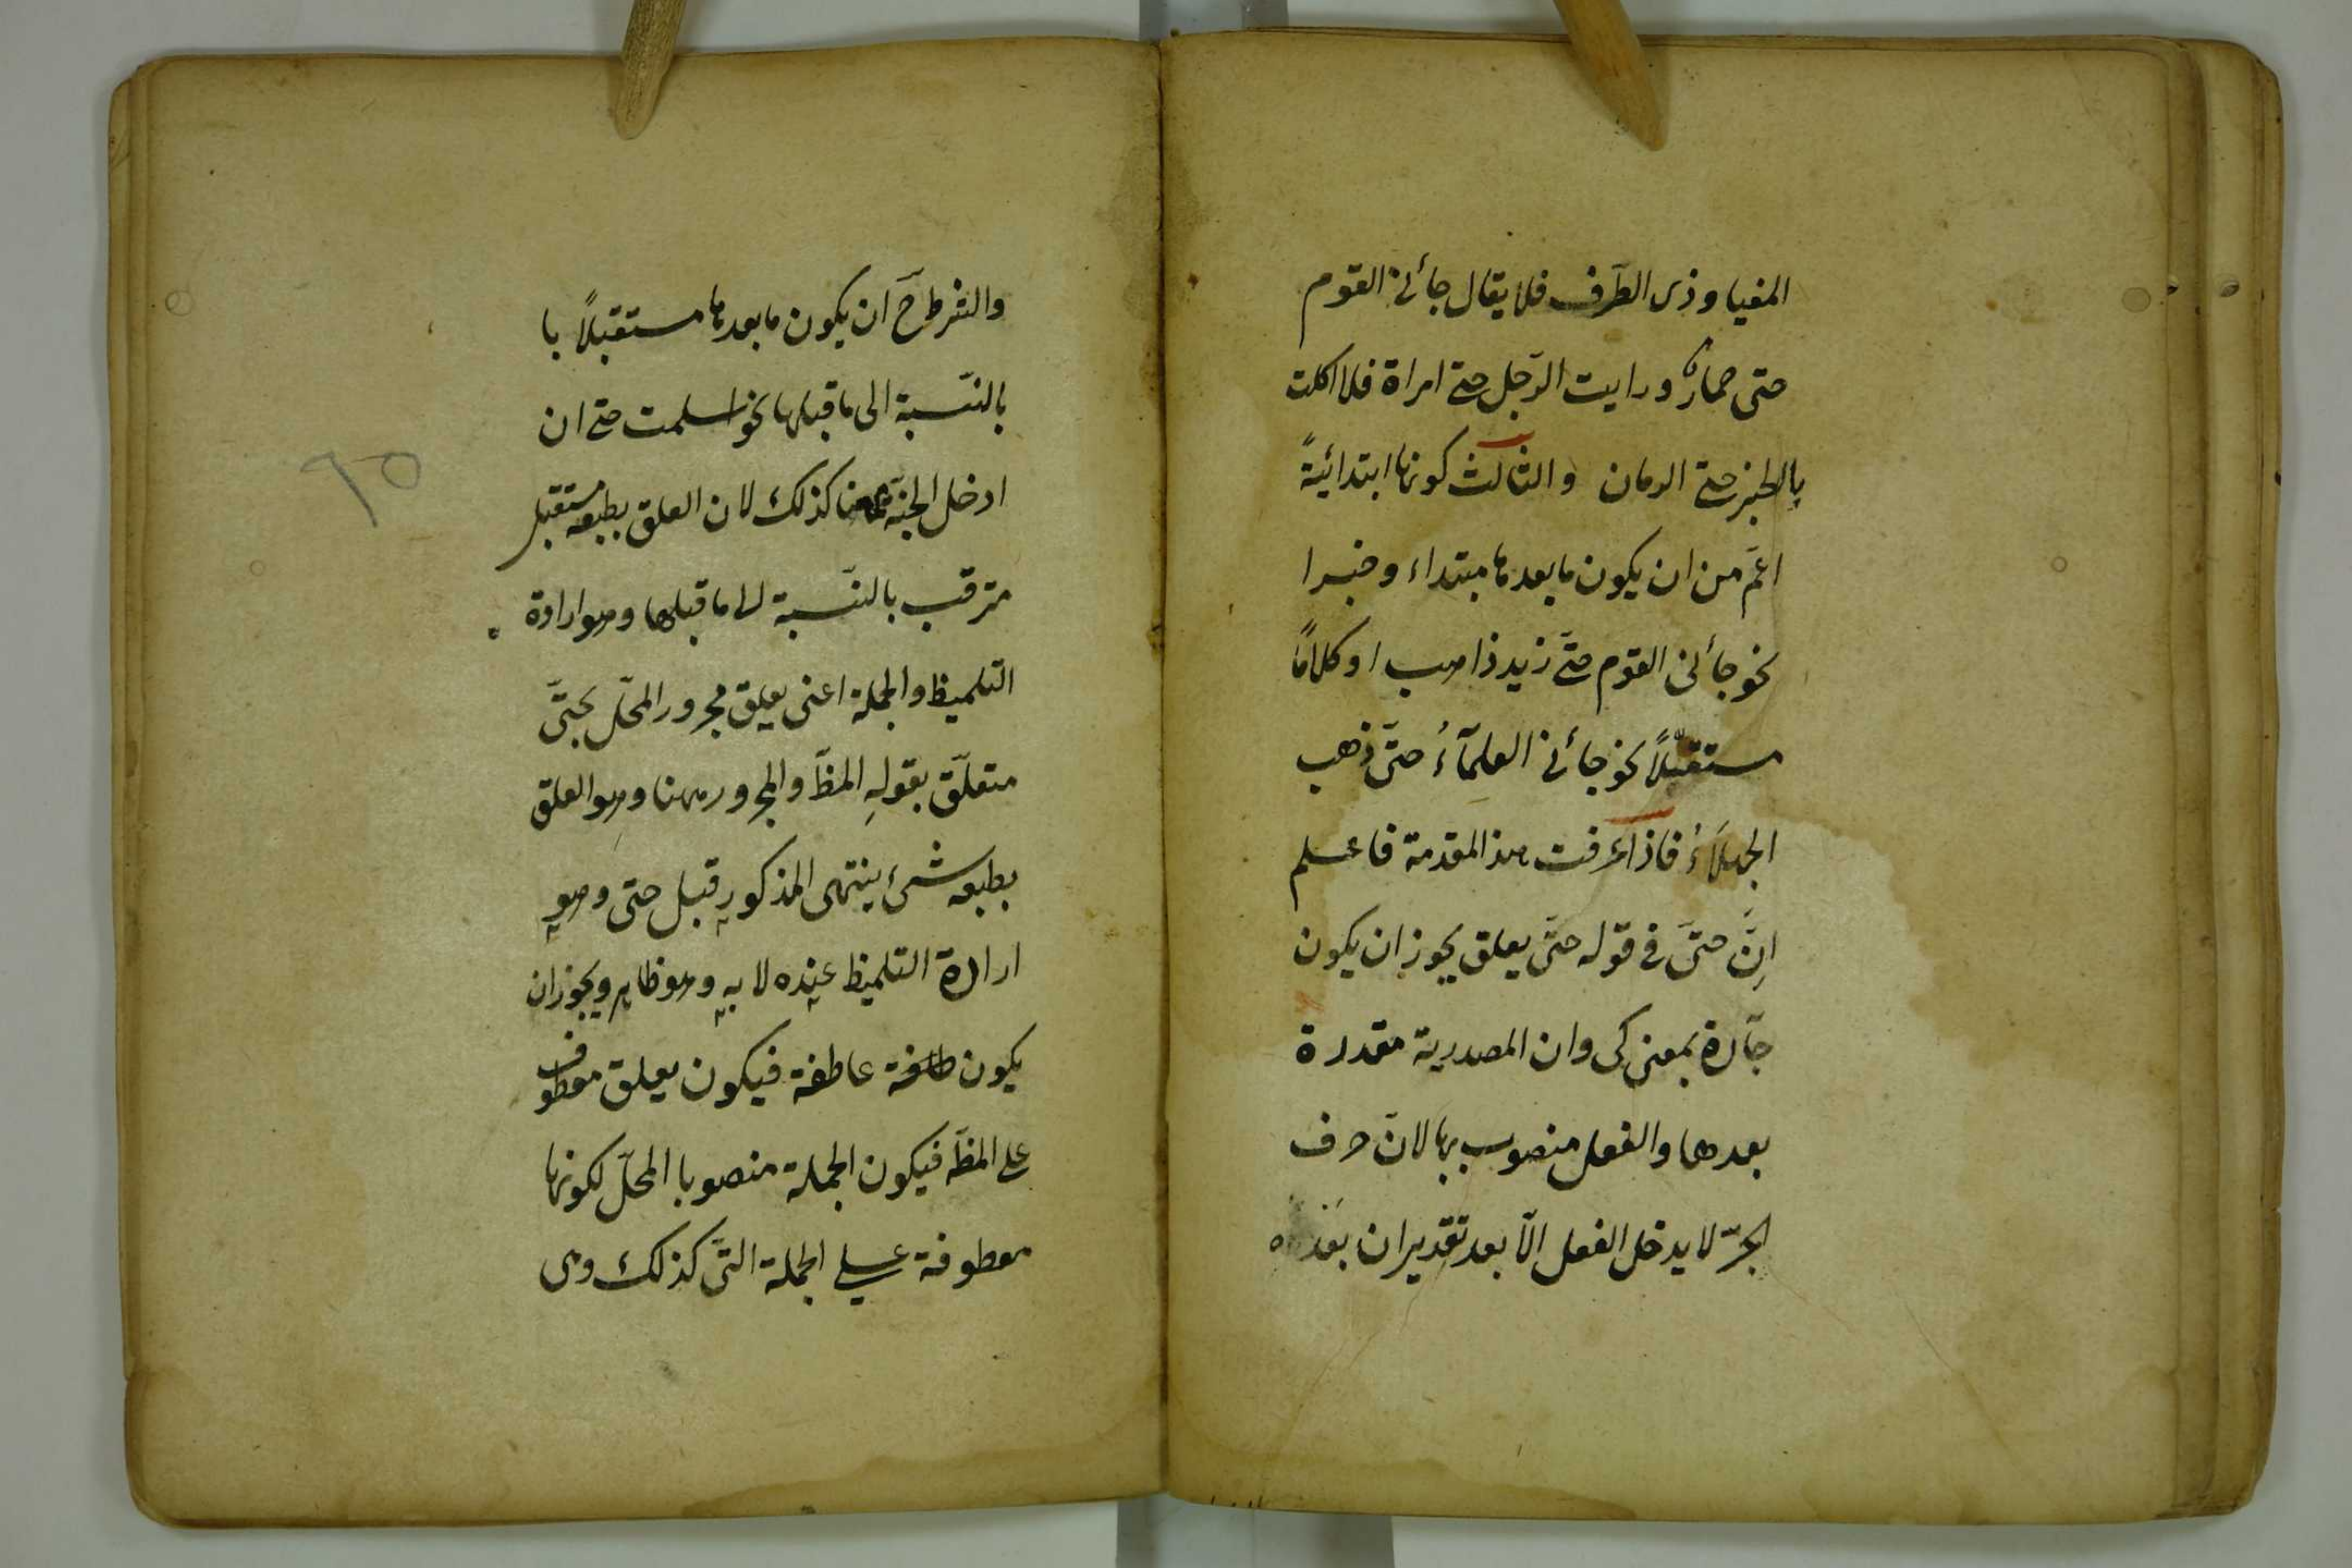 المغيا وذى الطرف فلا يقال جائنى القوم
حتى حمارٌ ورايت الرّجل حتى امراة فلا اكلت
بالخبز حتى الرمان والثالث كونها ابتدائيةً
اعمّ من ان يكون ما بعدها مبتداء وخبرا
نحو جائنى القوم حتّى زيد ذاهب او كلامًا
مستقبلًا نحو جائنى العلمآءُ حتّى ذهب
الجهلاءُ فاذا عرفت هذ المقدمة فاعلم
اِنَّ حتىّ فى قوله حتّى يعلق يجوز ان يكون
جآرة بمعنى كى وان المصدرية مقدرة
بعدها والفعل منصوب بها لانّ حرف
الجرّ لا يدخل الفعل الّا بعد تقدير ان
والشرط حَ ان يكون ما بعدها مستقبلًا با
بالنّسبة الى ما قبلها نحو اسلمت حتى ان
ادخل الجنّة كذلك لان العلق بطبعه مستقبل
مترقب بالنّسبة الى ما قبلها وهو ارادة
التلميظ والجملة اعنى يعلق مجرور المحلّ بحتّى
متعلّق بقولهِ المظّ والمجرور ههنا وهو العلق
بطبعه شىء ينتهى المذكور قبل حتى وهو
ارادة التلميظ عنده لا به وهو ظاهر ويجوز ان
يكون عاطفة فيكون يعلق معطوف
على المظّه فيكون الجملة منصوبا المحلّ لكونها
معطوفة على الجملة التّى كذلك وهى
٩٥